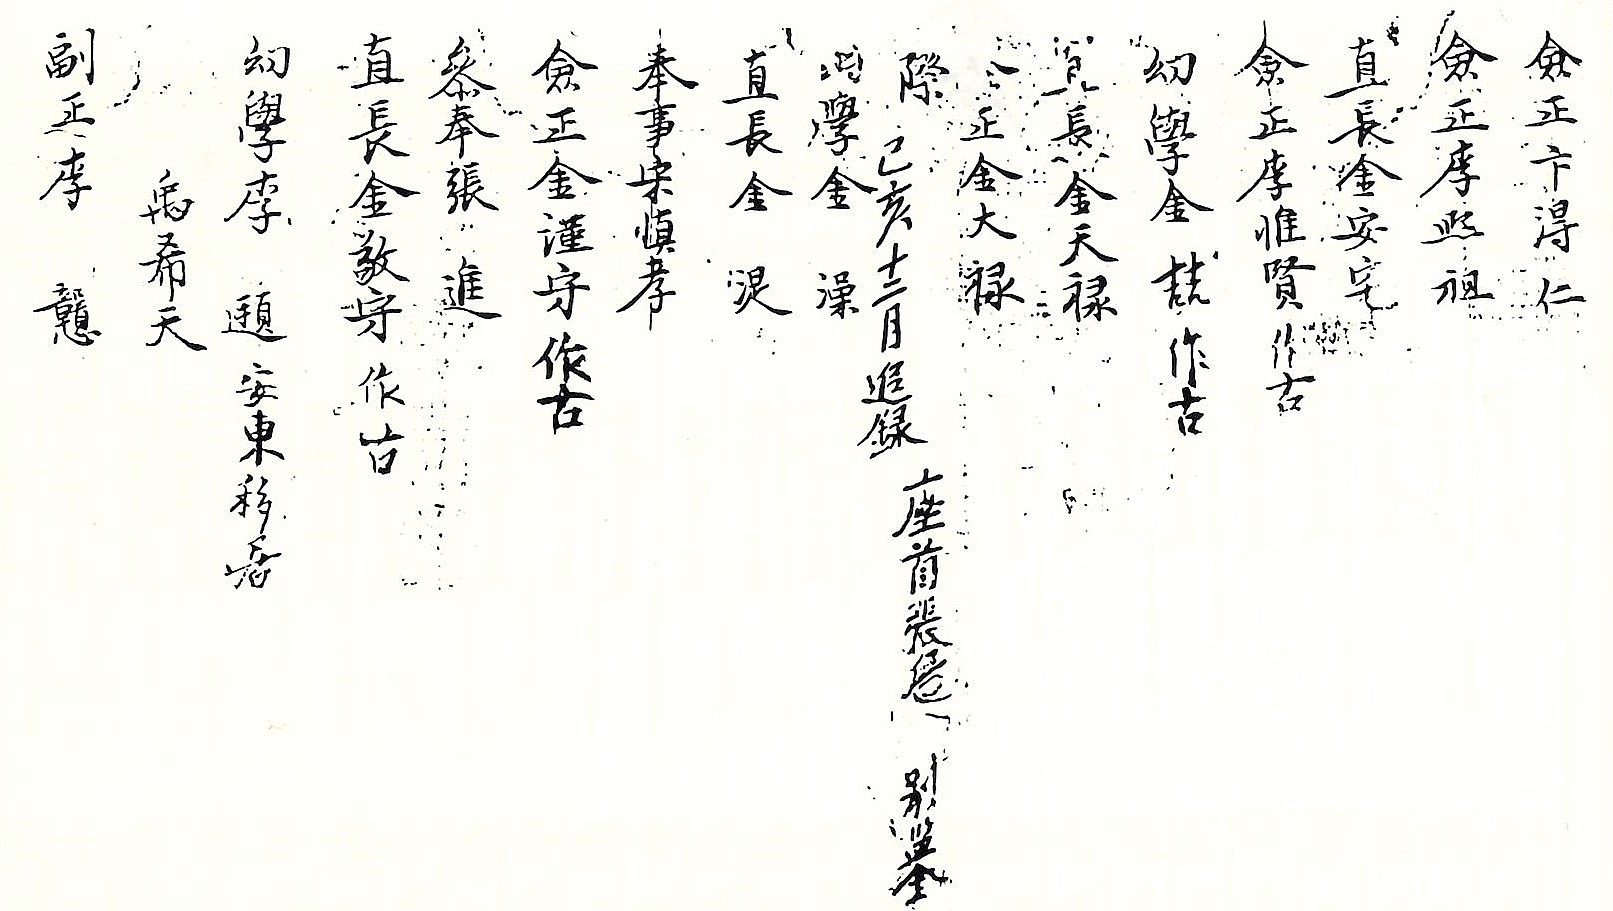 僉正卞得仁
僉正李熙祖
直長金安宅
僉正李惟賢作古
幼學金喆作古
直長金天祿
僉正金大祿
際 己亥十二月追録 座首張 別監金
幼學金澡
直長金混
奉事宋慎孝
僉正金謹守作古
參奉張進
直長金敬守作古
幼學李頤安東移居
禹希天
副正李